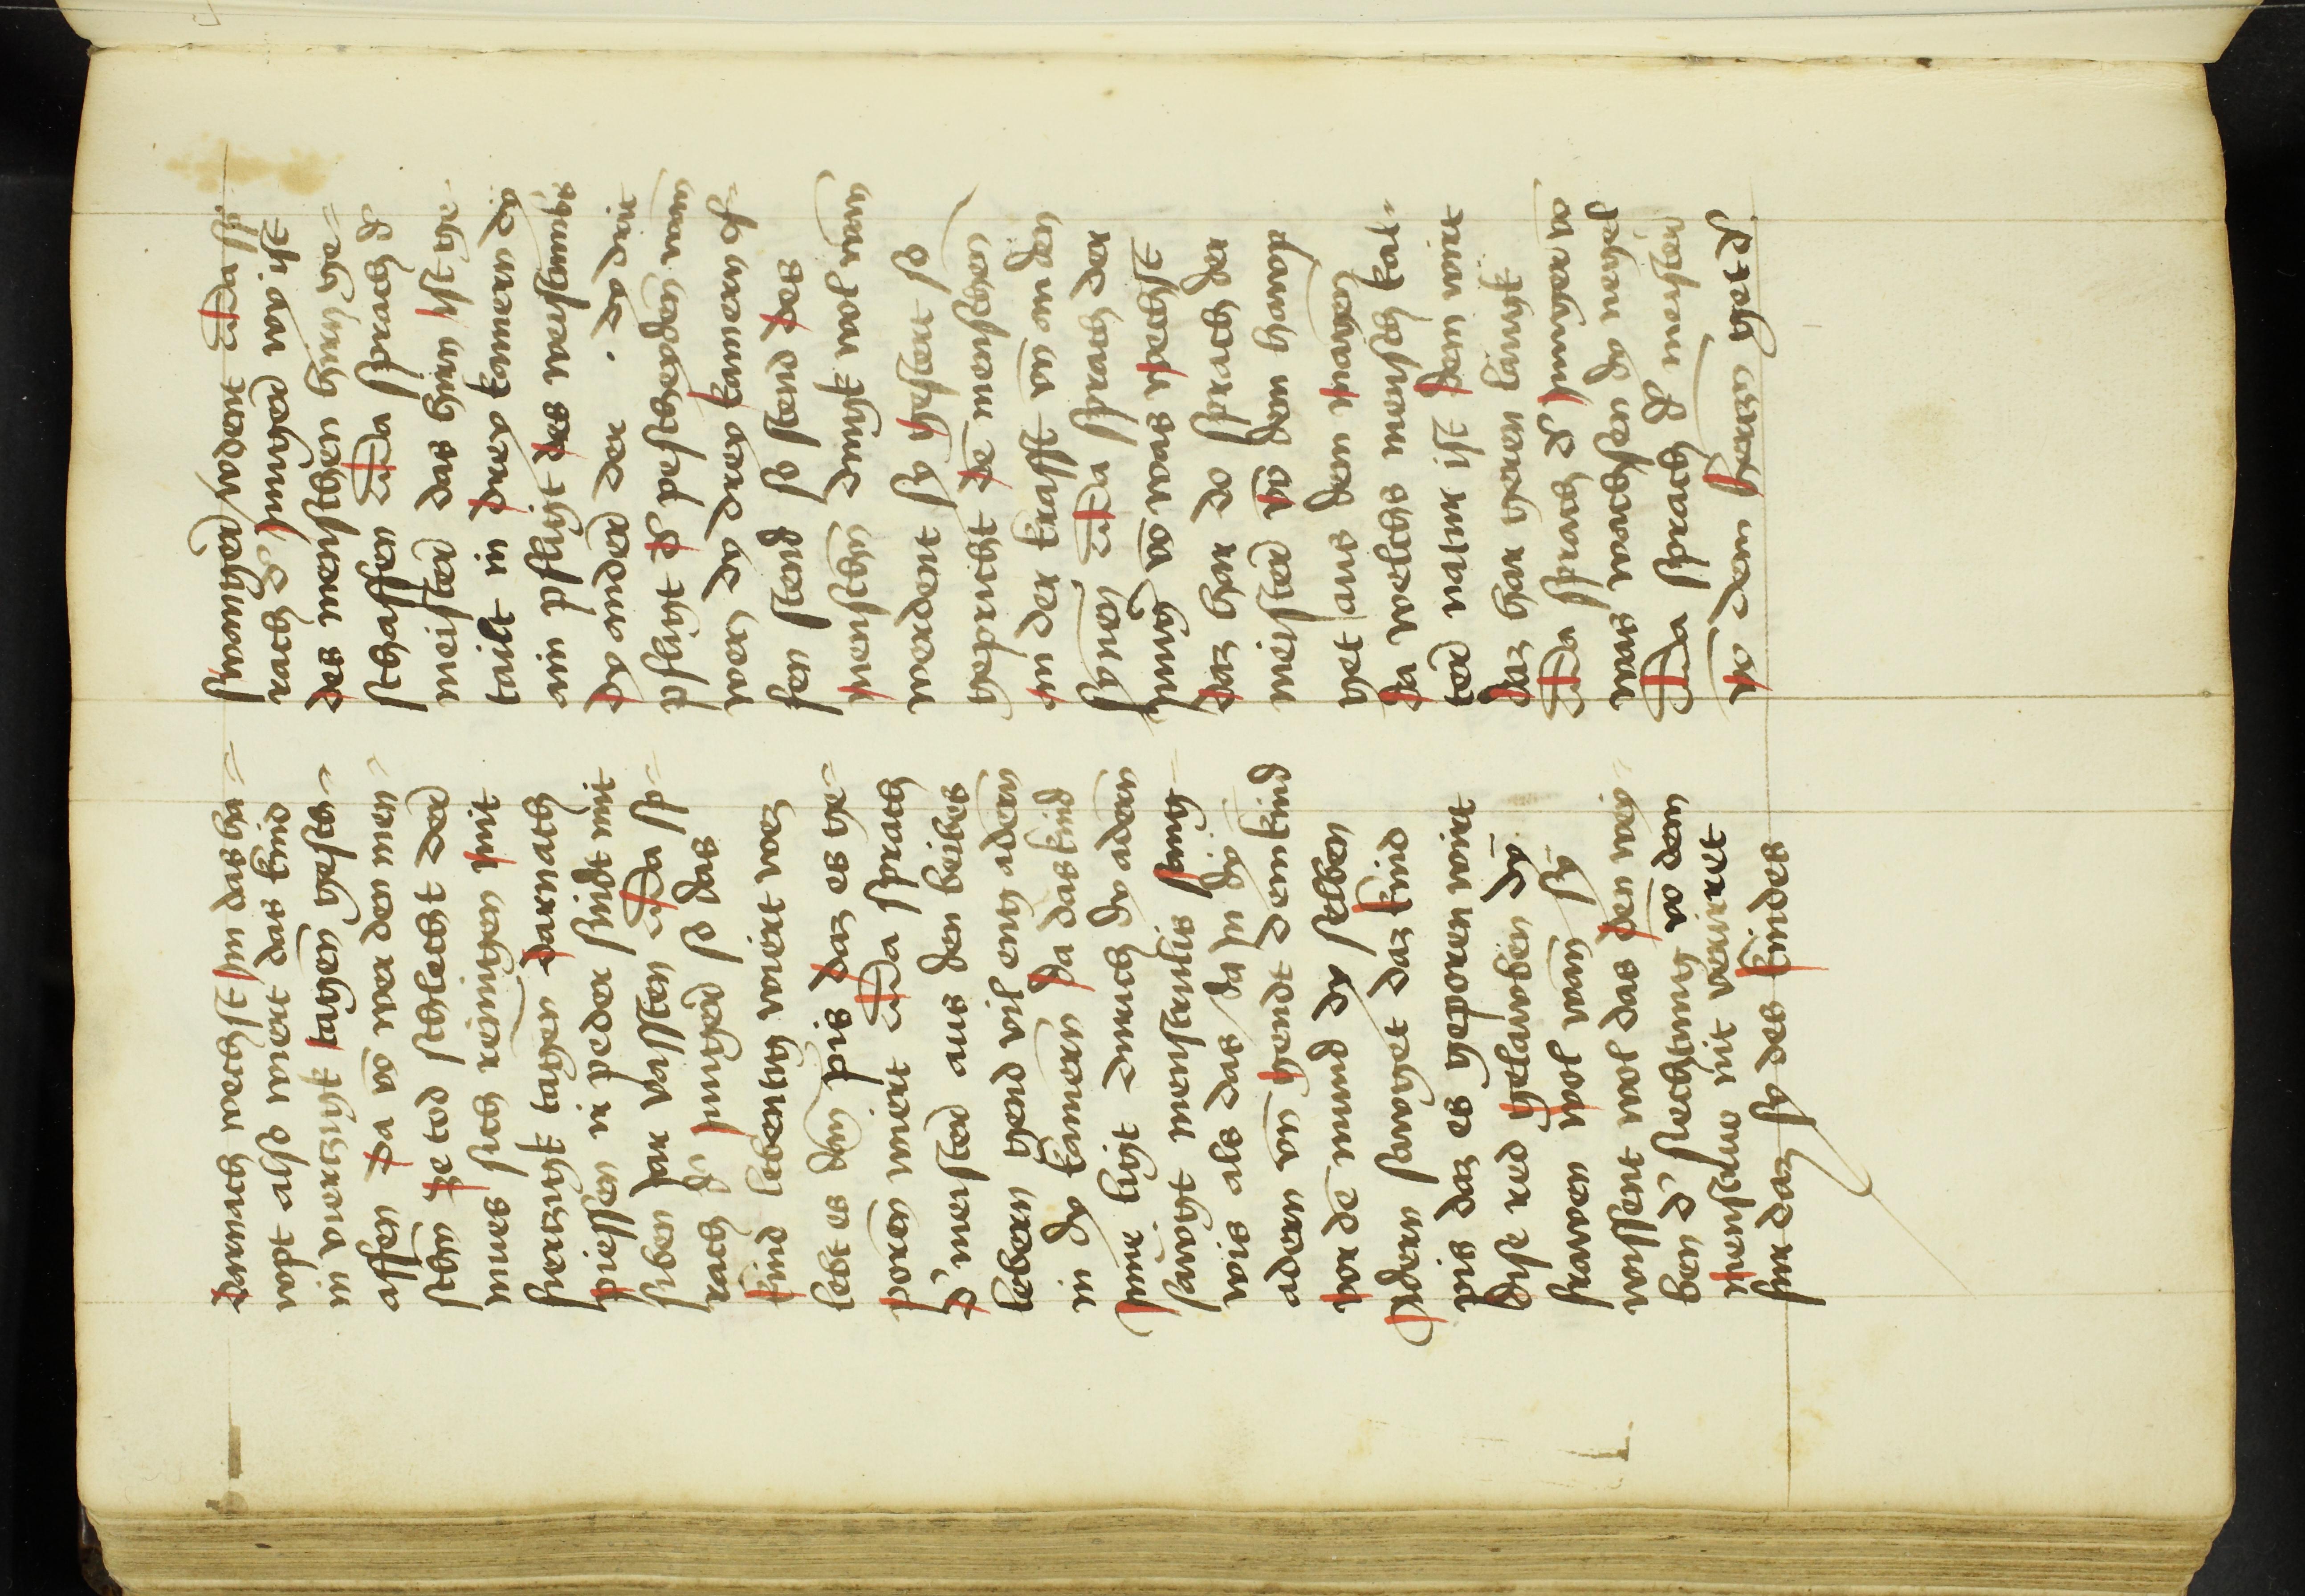 Darnach wechst im das ha-
wpt also wiert das kind
in viertzigk tagen gesch-
affen da vō wer den men-
schn̄ ze tod schlecht der
mues sich reinigen mit
fiertzigk tagen darnach
piessen in peder sindt mit
siben Jar vassten Da sp-
rach d' junger so das
kind lebentig wiert wez
lebt es dan̄ pis daz es ge-
poren wiert Da sprach
d' meister aus den beibes
lebern gend vil eng adern
in dy kamern da das kind
inne ligt durch dy adern
sawgt menstruis
wis als das da in dy
adern vn̄ gendt dem kind
vor dē mund dy selben
adern sawget daz kind
pis daz es geporen wirt
Dise red gelawben dy
frawen wol wan̄ sy
wissent wol das den wey-
ben d' flechtung vō dem
menstrue nit verirret
fur daz sy des kindes
swanger wdent Da sp-
rach d' junger wy ist
des menschen hirn ge-
schaffen Da sprach d'
meister das hirn ist ge-
tailt in drey kamern dy
ain pfligt des
dy ander der . dy drit
pfligt d' peschayden wan̄
wen dy drey kamern of-
fen stend so stend des
menschen dingk wol wan̄
werdent sy gestert so
gepricht dē menschen
an der krafft vn̄ an den
synnen Da sprach der
jung vō was wechst
daz har do sprach der
meister vō dem hawp
get aus dem magen
da welchs mensch kal-
ter natur ist dem wirt
daz har geren langk
Da sprach d' junger vō
was wachsen dy negel
Da sprach d' meister
vō dem herzn get d'